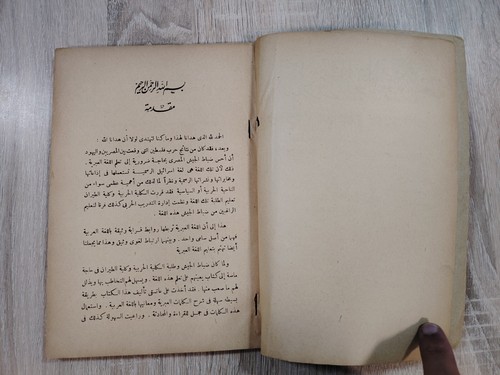 بسم الله الرحمن الرحيم
مقدمة
الحمد لله الذى هدانا لهذا وما كنا لنهتدى لولا أن هدانا الله
وبعد فقد كان من نتائج حرب فلسطين التى وقعت بين المصريين واليهود
أن أحس ضباط الجيش المصرى بحاجة ضرورية إلى تعلم اللغة العبرية .
ذلك لأن تلك اللغة هى لغة اسرائيل الرسمية تستعملها فى إذاعاتها
ومخابراتها ونشراتها الرسمية ونظراً لما لذلك من أهمية عظمى سواء من
الناحية الحربية أو السياسية فقد قررت الكلية الحربية وكلية الطيران
تعليم الطلبة تلك اللغة ونظمت إدارة التدريب الحربى كذلك فرقا لتعليم
الراغبين من ضباط الجيش هذه اللغة .
هذا إلى أن اللغة العبرية تربطها روابط قرابة وثيقة باللغة العربية
فهما من أصل سامى واحد . وبينهما ارتباط لغوى وثيق وهذا مما يجعلنا
أيضا نهتم بتعلم اللغة العبرية
ولما كان ضباط الجيش وطلبة الكلية الحربية وكلية الطيران فى حاجة
ماسة إلى كتاب يعينهم على تعلم هذه اللغة . ويسهل لهم التخاطب بها ويذلل
لهم ما صعب منها . فقد أخذت على عاتقى تأليف هذا الكتاب بطريقة
مبسطة سهلة فى شرح الكلمات العبرية ومعانيها باللغة العربية . واستعمال
هذه الكلمات فى جمل للقراءة والمحادثة . وراعيت السهولة كذلك فى